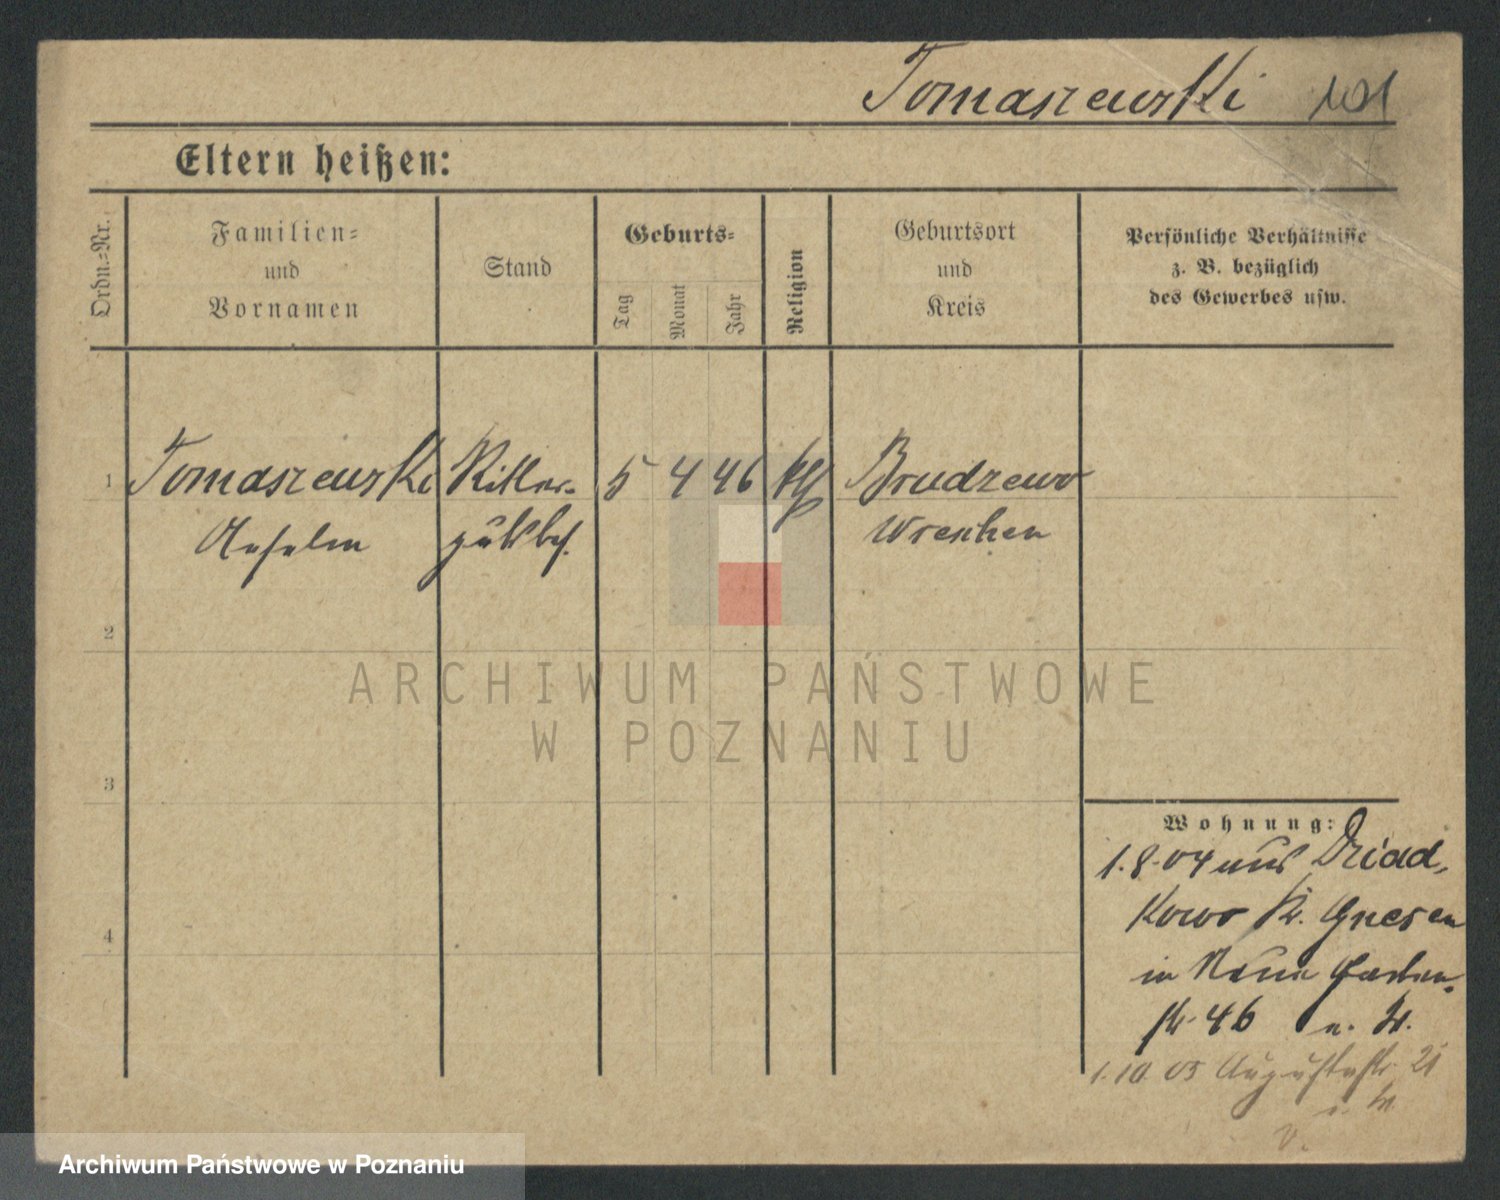 Tomaszewski 101
Eltern heißen:
Ordn.-Nr.
Familien-
und
Vornamen
Stand
Geburts-
Tag
Monat
Jahr
Religion
Geburtsort
und
Kreis
Persönliche Verhältnisse
z. B. bezüglich
des Gewerbes usw.
1 Tomaszewski Ritter- 5 4 46 kth Brudzewo
Anselm gutsbes. Wreschen
2
3
4
Wohnung:
1.8.04 aus Dziad-
kowo Kr. Gnesen
in Neue Garten-
str. 46
1.10.05 Augustastr. 21
ARCHIWUM PAŃSTWOWE
W POZNANIU
Archiwum Państwowe w Poznaniu